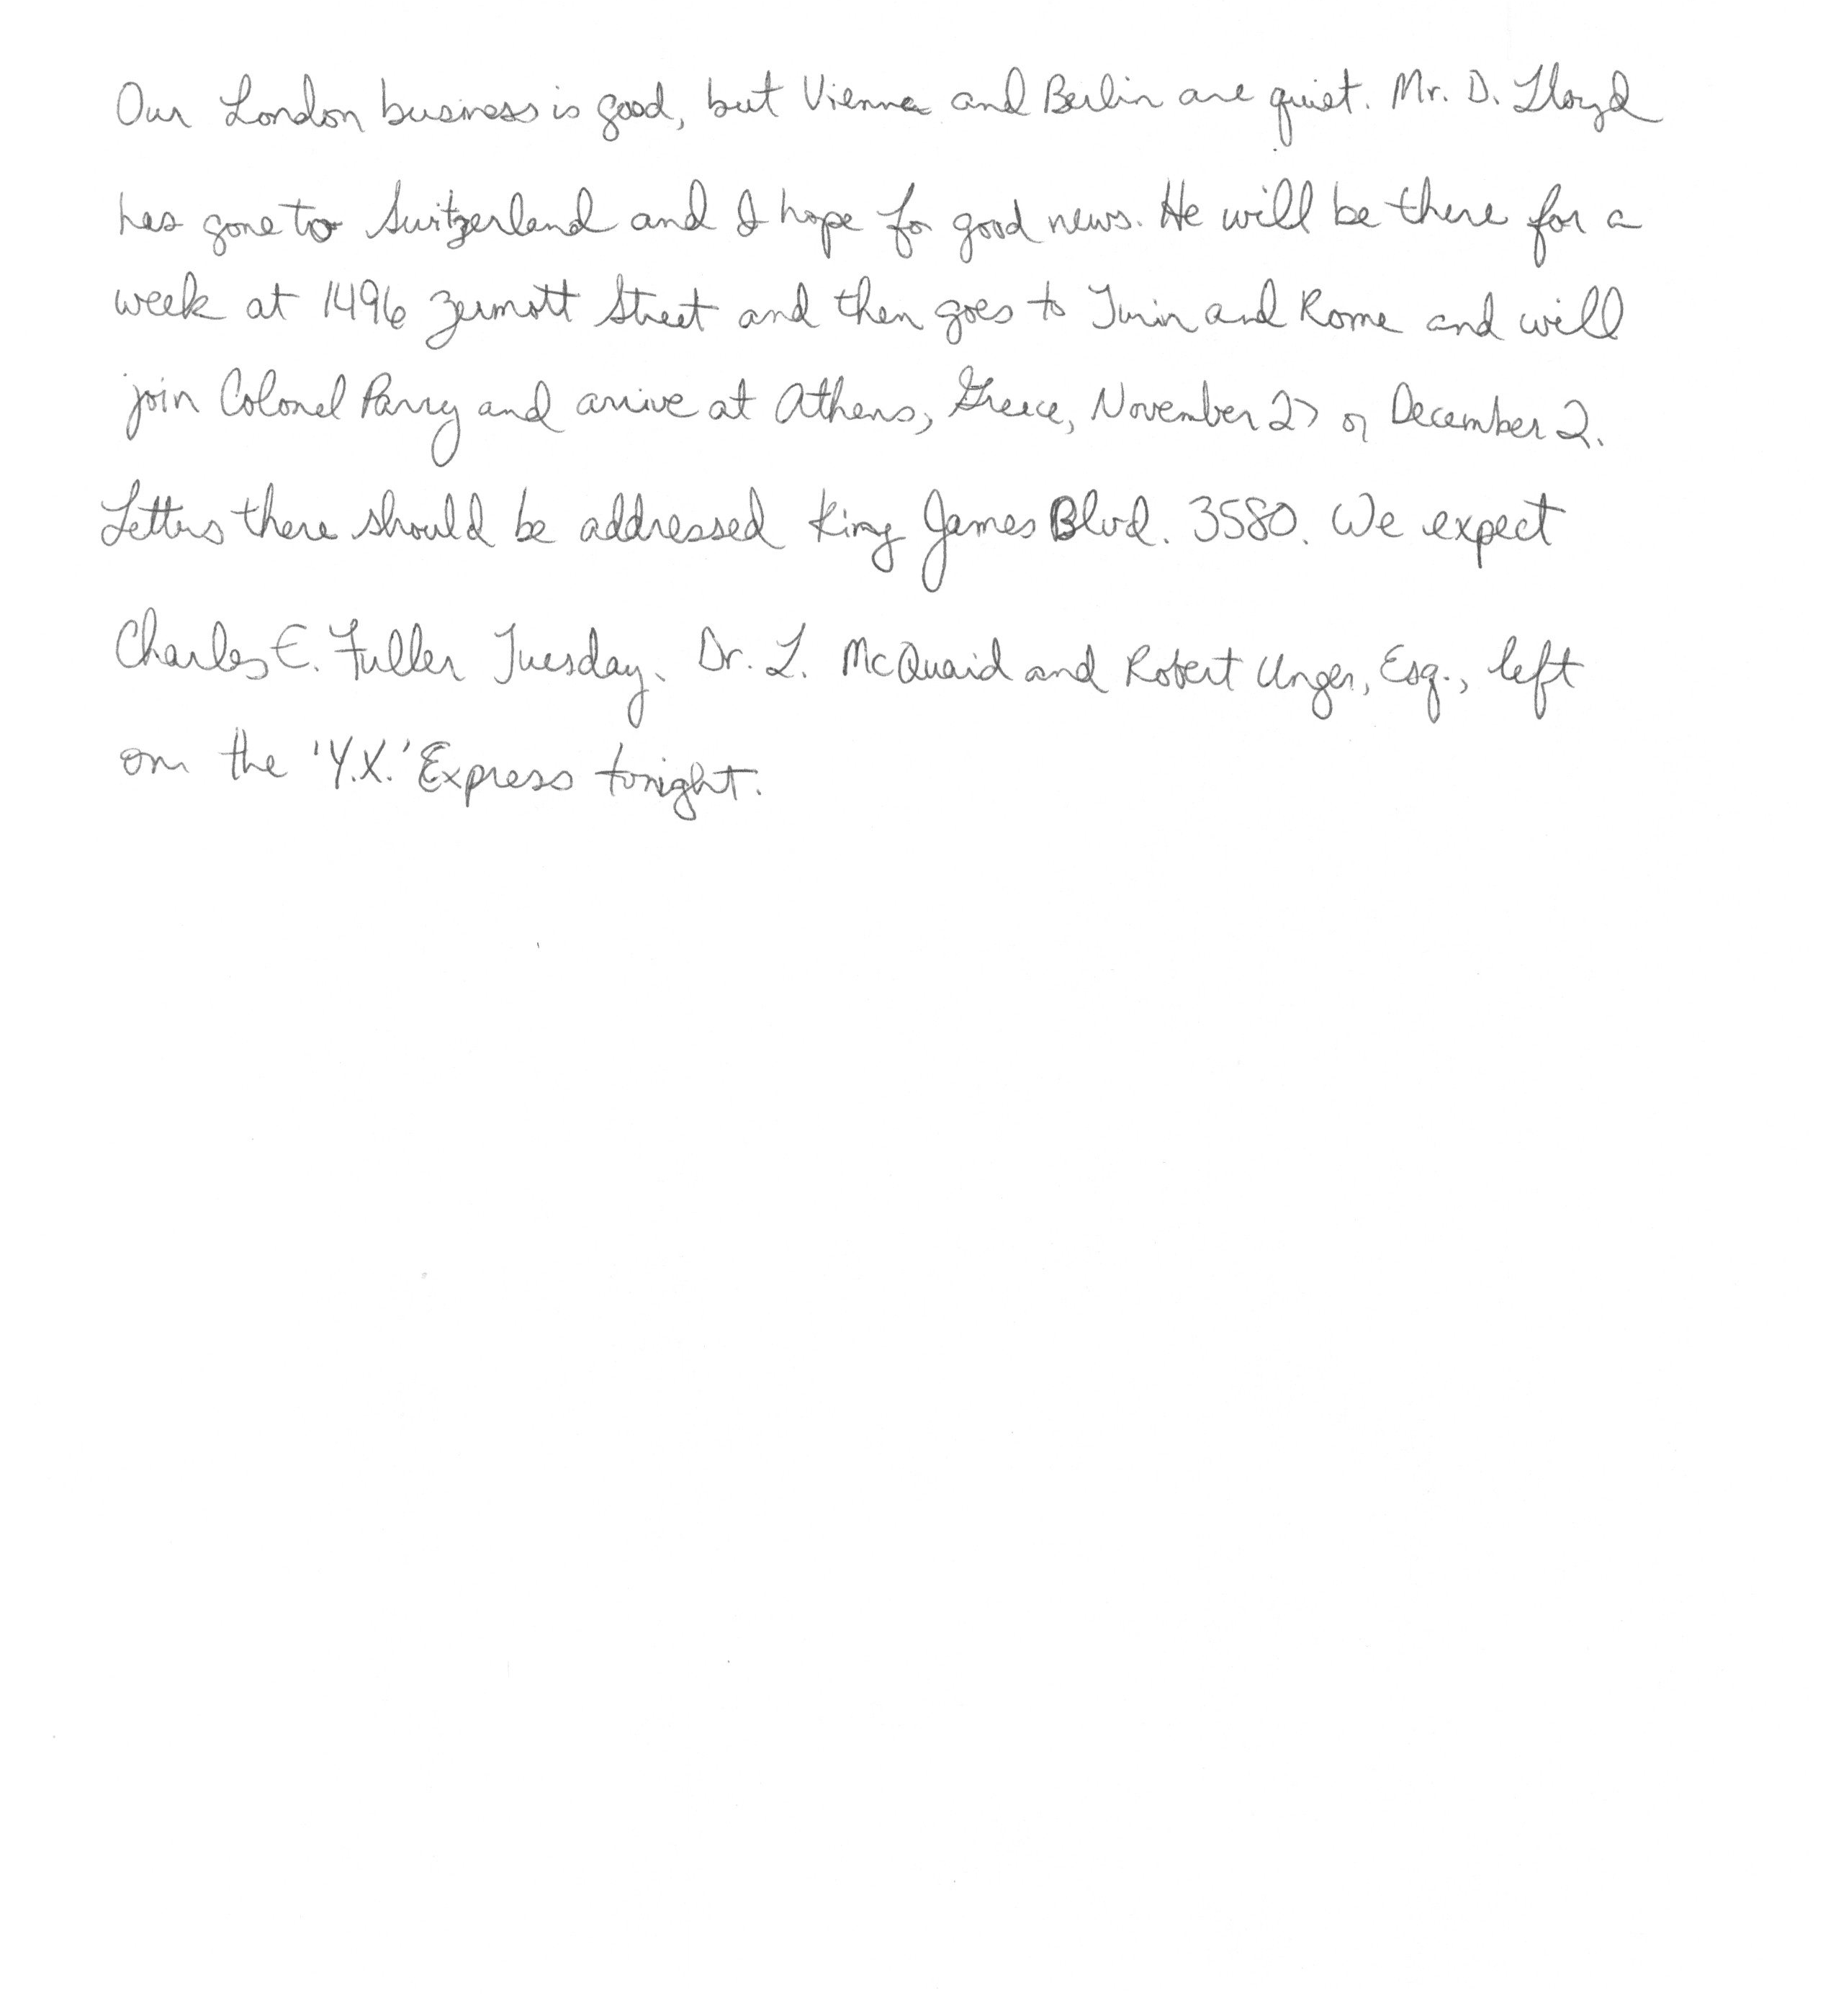 Our London business is good, but Vienna and Berlin are quiet. Mr. D. Lloyd
has gone to Switzerland and I hope for good news. He will be there for a
week at 1496 Zermott Street and then goes to Turin and Rome and will
join Colonel Parry and arrive at Athens, Greece, November 27 or December 2.
Letters there should be addressed King James Blvd. 3580. We expect
Charles E. Fuller Tuesday. Dr. L. McQuaid and Robert Unger, Esq., left
on the 'Y.X.' Express tonight.